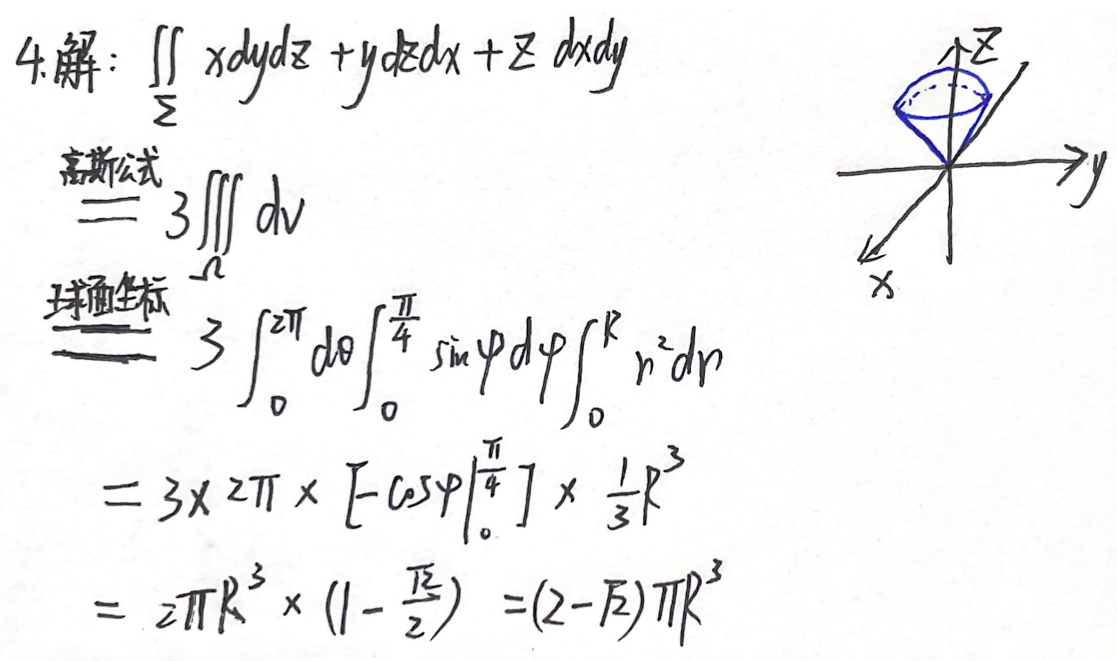 4.解: ∬_Σ xdydz + ydzdx + z dxdy
高斯公式
= 3∭_Ω dv
球面坐标
= 3∫_0^{2π} dθ ∫_0^{π/4} sinφdφ ∫_0^R r²dr
= 3×2π × [-cosφ|_0^{π/4}] × 1/3 R³
= 2πR³ × (1 - √2/2) = (2-√2)πR³
z
y
x